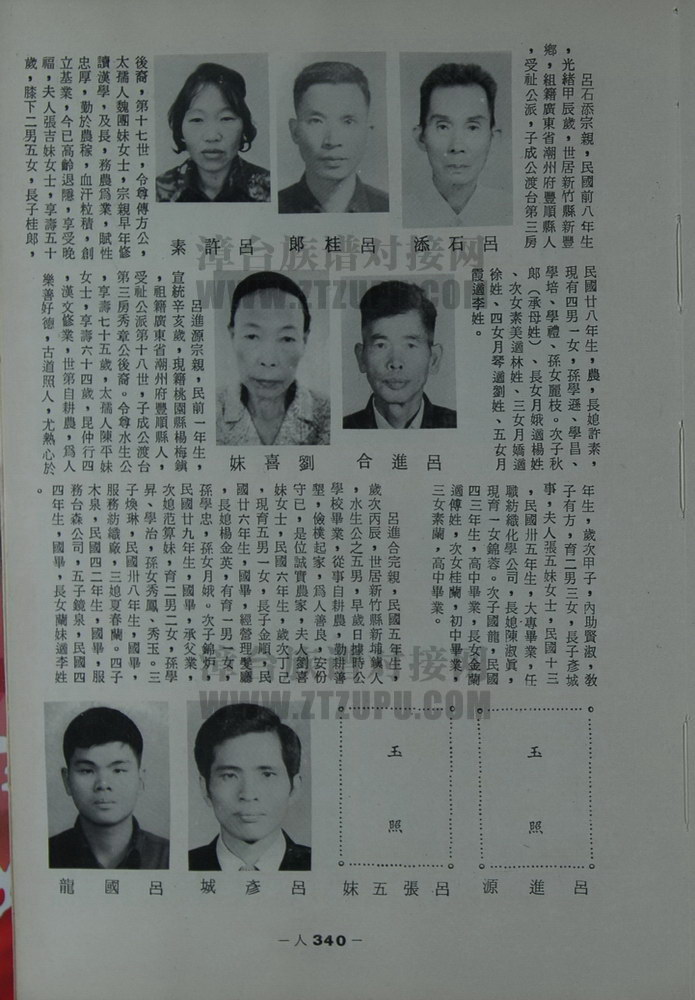 呂石添宗親，民國前八年生
，光緒甲辰歲，世居新竹縣新豐
鄉，組籍廣東省潮州府豐順縣人
，受祉公派，子成公渡台第三房
呂石添
呂桂郎
呂許素
後裔，第十七世，令尊傳方公，
太孺人魏團妹女士，宗親早年修
讀漢學，及長，務農爲業，賦性
忠厚，勤於農稼，血汗粒積，創
立基業，今已高齡退隱，享受晚
福，夫人張吉妹女士，享壽五十
歲，膝下二男五女，長子桂郎，
民國廿八年生，農，長媳許素，
現有四男一女，孫學遜、學昌、
學培、學禮、孫女麗枝。次子秋
郎（承母姓）、長女月娥適楊姓
、次女素美適林姓、三女月嬌適
徐姓、四女月琴適劉姓、五女月
霞適李姓。
呂進合
劉喜妹
呂進源宗親，民前一年生，
宣統辛亥歲，現籍桃園縣楊梅鎮
，祖籍廣東省潮州府豐順縣人，
受祉公派第十八世，子成公渡台
第三房秀章公後裔。令尊水生公
，享壽七十五歲，太孺人陳平妹
女士，享壽六十四歲，昆仲行四
，漢文修業，世第自耕農，爲人
樂善好德，古道照人，尤熱心於
年生，歲次甲子，內助賢淑，敎
子有方，育二男三女，長子彥城
事，夫人張五妹女士，民國十三
，民國卅五年生，大專畢業，任
職紡織化學公司，長媳陳淑眞，
現育一女錦蓉。次子國龍，民國
四三年生，高中畢業，長女金蘭
適傅姓，次女桂蘭，初中畢業，
三女素蘭，高中畢業。
呂進合宗親，民國五年生，
歲次丙辰，世居新竹縣新埔鎮人
，水生公之五男，早歲日據時公
學校畢業，從事自耕農，勤耕善
墾，儉樸起家，爲人善良，安份
守已，是位誠實農家，夫人劉喜
妹女士，民國六年生，歲次丁己
，現育五男一女，長子金順，民
國廿六年生，國畢，經營理髮廳
，長媳楊金英，有育一男一女，
孫學忠，孫女月娥。次子錦炉，
民國廿九年生，國畢，承父業，
次媳范算妹，育二男二女，孫學
昇、學治，孫女秀鳳、秀玉。三
子煥琳，民國卅八年生，國畢，
服務紡織廠，三媳夏春蘭。四子
木泉，民國四二年生，國畢，服
務台森公司，五子鏡泉，民國四
四年生，國畢，長女蘭妹適李姓
。
玉照
呂進源
玉照
呂張五妹
呂彥城
呂國龍
—人340—
漳台族谱对接网
WWW.ZTZUPU.COM
漳台族谱对接网
WWW.ZTZUPU.COM